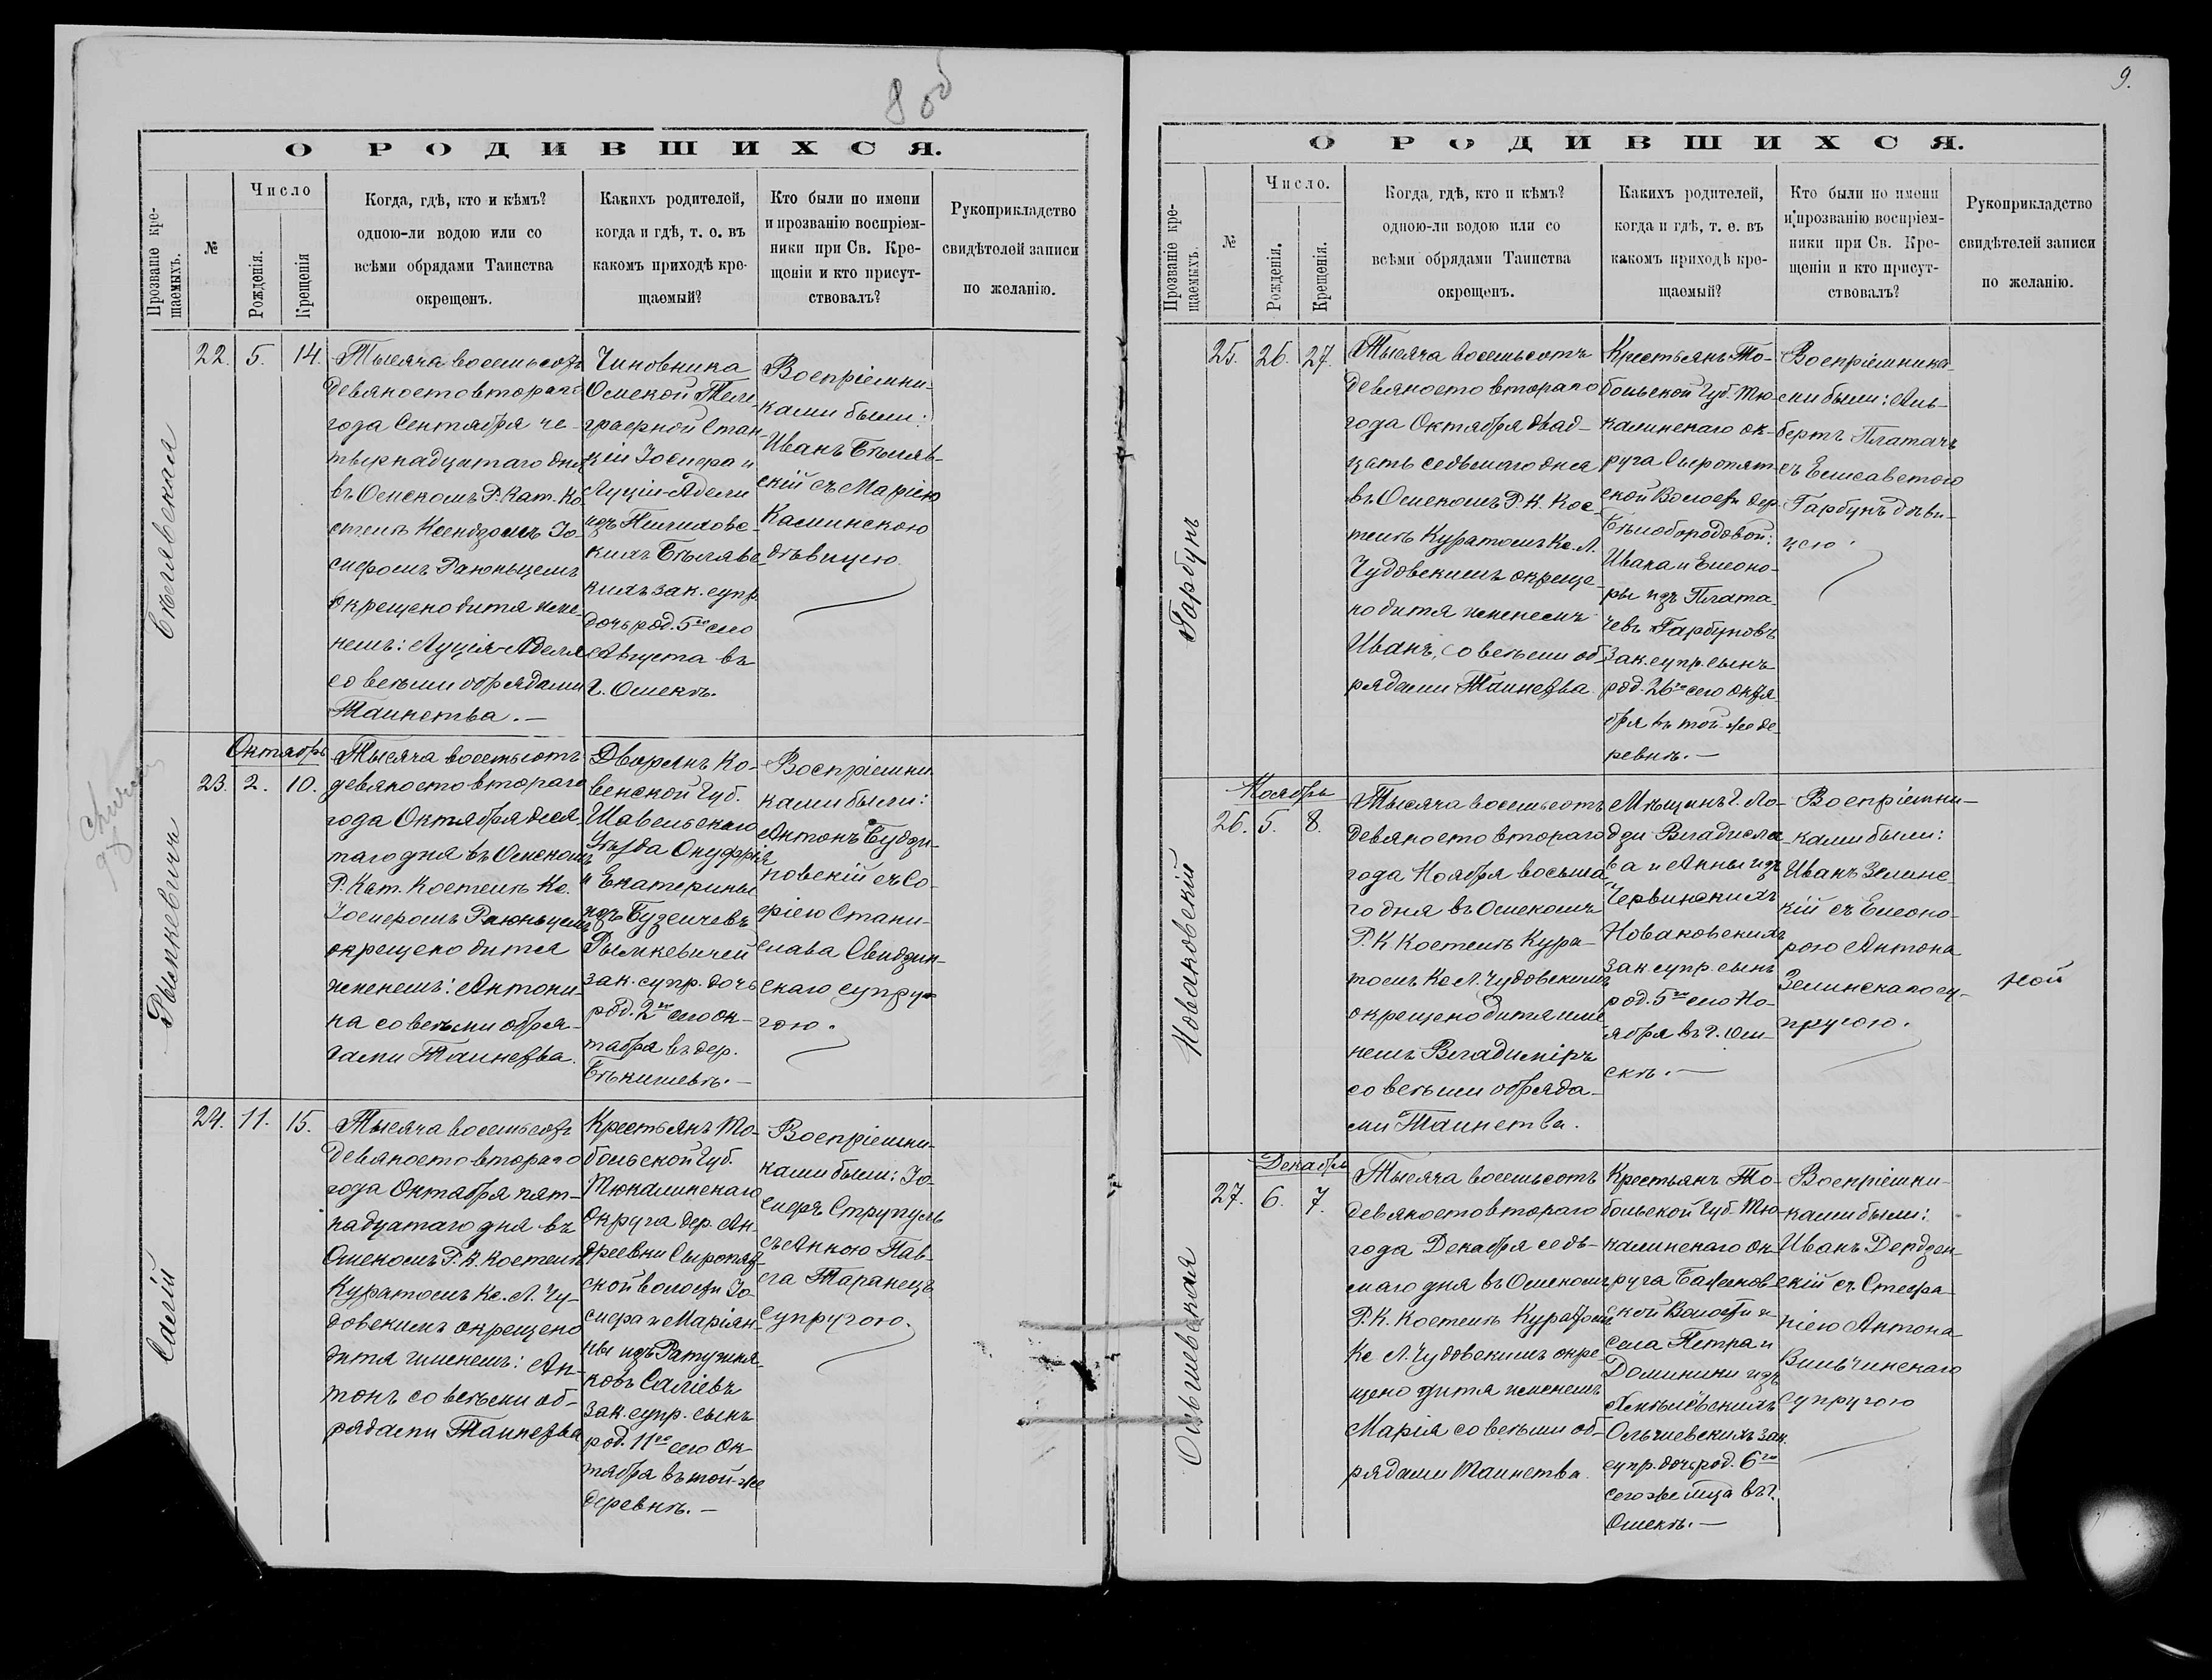 8 об
О РОДИВШИХСЯ.
Прозваніе кре-
щаемыхъ.
№
Число
Рожденія.
Крещенія
Когда, гдѣ, кто и кѣмъ?
одною-ли водою или со
всѣми обрядами Таинства
окрещенъ.
Какихъ родителей,
когда и гдѣ, т. е. въ
какомъ приходѣ кре-
щаемый?
Кто были по имени
и прозванію воспріем-
ники при Св. Кре-
щеніи и кто присут-
ствовалъ?
Рукоприкладство
свидѣтелей записи
по желанію.
22. 5. 14.
Тысяча восемьсотъ
девяносто втораго
года Сентября че-
тырнадцатаго дня
въ Омскомъ Р. Кат. Ко-
стелѣ Ксендзомъ Іо-
сифомъ Раюньцемъ
окрещено дитя име-
немъ: Луція-Аделя
со всѣми обрядами
Таинства. —
Чиновника
Омской Теле-
графной Стан-
ціи Іосифа и
Луціи-Адели
изъ
кихъ Бѣлявс-
кихъ зак. супр.
дочь род. 5го сего
Августа въ
г. Омскѣ.
Воспріемни-
ками были:
Иванъ Бѣляв-
скій съ Маріею
Каминскою
дѣвицею.
Рымкевичъ
Октябрь
23. 2. 10.
Тысяча восемьсотъ
девяносто втораго
года Октября деся-
таго дня въ Омскомъ
Р. Кат. Костелѣ Кс.
Іосифомъ Раюньцемъ
окрещено дитя
именемъ: Антони-
на со всѣми обря-
дами Таинства.
Дворянъ Ко-
венской Губ.
Шавельскаго
Уѣзда Онуфрія
и Екатерины
изъ Бузевичевъ
Рымкевичей
зак. супр. дочь
род. 2го сего ок-
тября въ дер.
Бѣкишевѣ. —
Воспріемни-
ками были:
Антонъ Будзи-
новскій съ Со-
фіею Стани-
слава Свидзин-
скаго супру-
гою.
Салій
24. 11. 15.
Тысяча восемьсотъ
девяносто втораго
года Октября пят-
надцатаго дня въ
Омскомъ Р. К. Костелѣ
Куратомъ Кс. Л. Чу-
довскимъ окрещено
дитя именемъ: Ан-
тонъ со всѣми об-
рядами Таинства
Крестьянъ То-
больской Губ.
Тюкалинскаго
Округа дер. Ан-
дреевки Сыропят-
ской волости Іо-
сифа и Маріан-
ны изъ Ратушня-
ковъ Саліевъ
зак. супр. сынъ
род. 11го сего Ок-
тября въ той-же
деревнѣ. —
Воспріемни-
ками были: Іо-
сифъ Струпуль
съ Анною Пав-
ла Таранецъ
Супругою.
9.
О РОДИВШИХСЯ.
Прозваніе кре-
щаемыхъ.
№
Число.
Рожденія.
Крещенія.
Когда, гдѣ, кто и кѣмъ?
одною-ли водою или со
всѣми обрядами Таинства
окрещенъ.
Какихъ родителей,
когда и гдѣ, т. е. въ
какомъ приходѣ кре-
щаемый?
Кто были по имени
и прозванію воспріем-
ники при Св. Кре-
щеніи и кто присут-
ствовалъ?
Рукоприкладство
свидѣтелей записи
по желанію.
Гарбунъ
25. 26. 27.
Тысяча восемьсотъ
девяносто втораго
года Октября двад-
цать седьмаго дня
въ Омскомъ Р. К. Кос-
телѣ Куратомъ Кс. Л.
Чудовскимъ окреще-
но дитя именемъ
Иванъ, со всѣми об-
рядами Таинства.
Крестьянъ То-
больской Губ. Тю-
калинскаго ок-
руга Сыропят-
ской Волости дер.
Бѣлобородовой:
Ивана и Елеоно-
ры изъ Плата-
чевъ Гарбуновъ
зак. супр. сынъ
род. 26го сего Октя-
бря въ той-же де-
ревнѣ. —
Воспріемника-
ми были: Аль-
бертъ Платачъ
съ Елисаветою
Гарбунъ дѣви-
цею.
Новаковскій
Ноябрь
26. 5. 8.
Тысяча восемьсотъ
девяносто втораго
года Ноября восьма-
го дня въ Омскомъ
Р. К Костелѣ Кура-
томъ Кс Л. Чудовскимъ
окрещено дитя име-
немъ Владиміръ
со всѣми обряда-
ми Таинства.
Мѣщанъ г. Ло-
дзи Владисла-
ва и Анны изъ
Червинскихъ
Новаковскихъ
зак. супр. сынъ
род. 5го сего Но-
ября въ г. Ом-
скѣ. —
Воспріемни-
ками были:
Иванъ Зелинс-
кій съ Елеоно-
рою Антона
Зелинскаго су-
пругою.
Ольшевская
Декабрь
27. 6. 7.
Тысяча восемьсотъ
девяносто втораго
года Декабря седь-
маго дня въ Омскомъ
Р. К. Костелѣ Куратомъ
Кс Л. Чудовскимъ окре
щено дитя именемъ
Марія со всѣми об-
рядами Таинства.
Крестьянъ То-
больской Губ. Тю-
калинскаго Ок-
руга Баженов-
ской Волости и
села Петра и
Доминики изъ
Ольшевскихъ зак.
супр. дочь род. 6го
сего же мца въ г.
Омскѣ. —
Воспріемни-
ками были:
Иванъ Дердзен-
скій съ Стефа-
ніею Антона
Вильчинскаго
Супругою